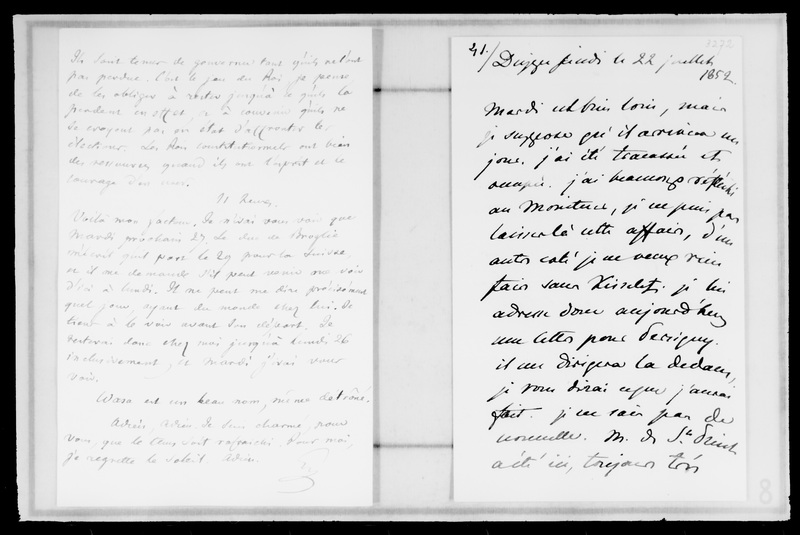 Ils sont tenus de gouverner tant qu'ils ne l'ont
pas perdue. C'est le jeu du Roi, je pense,
de les obliger à rester jusqu'à ce qu'ils la
perdent en effet, et à convenir qu'ils ne
se croyent pas en état d'affronter les
élections. Les Rois constitutionnels ont bien
des ressources quand ils ont l'esprit et le
courage d'en user.
11 heures.
Voilà mon facteur. Je n'irai vous voir que
Mardi prochain 27. Le duc de Broglie
m'écrit qu'il part le 29 pour la Suisse
et il me demande s'il peut venir me voir
d'ici à lundi. Il ne peut me dire précisément
quel jour, ayant du monde chez lui. Je
tiens à le voir avant son départ. Je
resterai donc chez moi jusqu'à lundi 26
inclusivement, et Mardi j'irai vous
voir.
Wasa est un beau nom, même détrôné.
Adieu, Adieu. Je suis charmé, pour
vous que le tems soit rafraichi. Pour moi,
je regrette le soleil. Adieu.
G
1272
41./ Dieppe jeudi le 22 juillet
1852.
Mardi est bien loin, mais
je suppose qu'il arrivera un
jour. j'ai été tracassée et
occupée. j'ai beaucoup réfléchi
au Moniteur, je ne puis pas
laisser là cette affaire, d'un
autre coté je ne veux rien
faire sans Kisseleff. je lui
adresse donc aujourd'hui
une lettre pour Persigny.
il me dirigera là dedans,
je vous dirai ce que j'aurai
fait. je ne sais pas de
nouvelle. M. de St. Priest
a été ici, toujours très
8